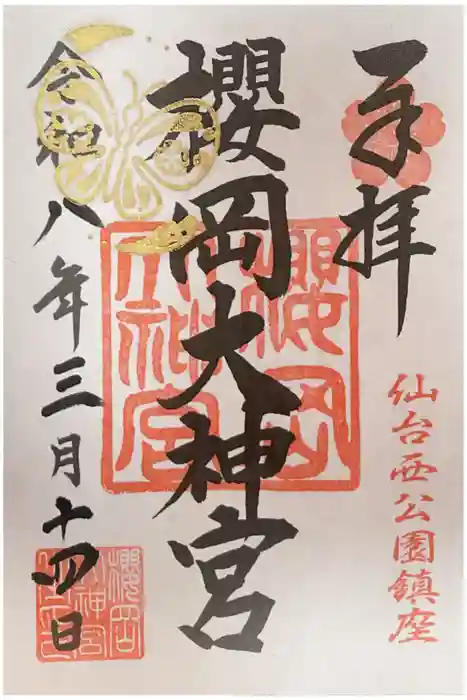 奉拝
仙台西公園鎮座
櫻岡大神宮
櫻岡大神宮
令和八年三月十四日
櫻岡
神宮